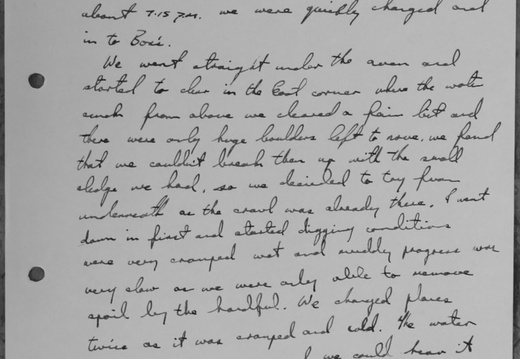 about 7.15 P.M. we were quickly changed and
in to Bos's.
We went straight under the aven and
started to clear in the East corner where the water
sunk from above we cleared a fair bit and
there were only huge boulders left to move. we found
that we couldn't break them up with the small
sledge we had, so we decided to try from
underneath as the crawl was already there. I went
down in first and started digging conditions
were very cramped wet and muddy progress was
very slow as we were only able to remove
spoil by the handful. We changed places
twice as it was cramped and cold. The water
we could hear it